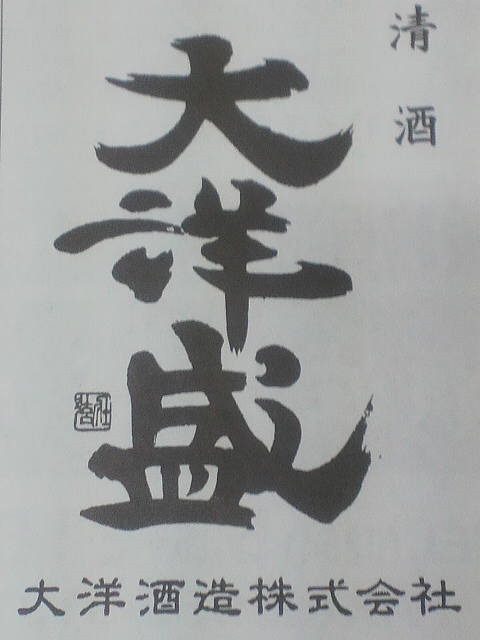 清酒
大洋盛
大洋酒造株式会社